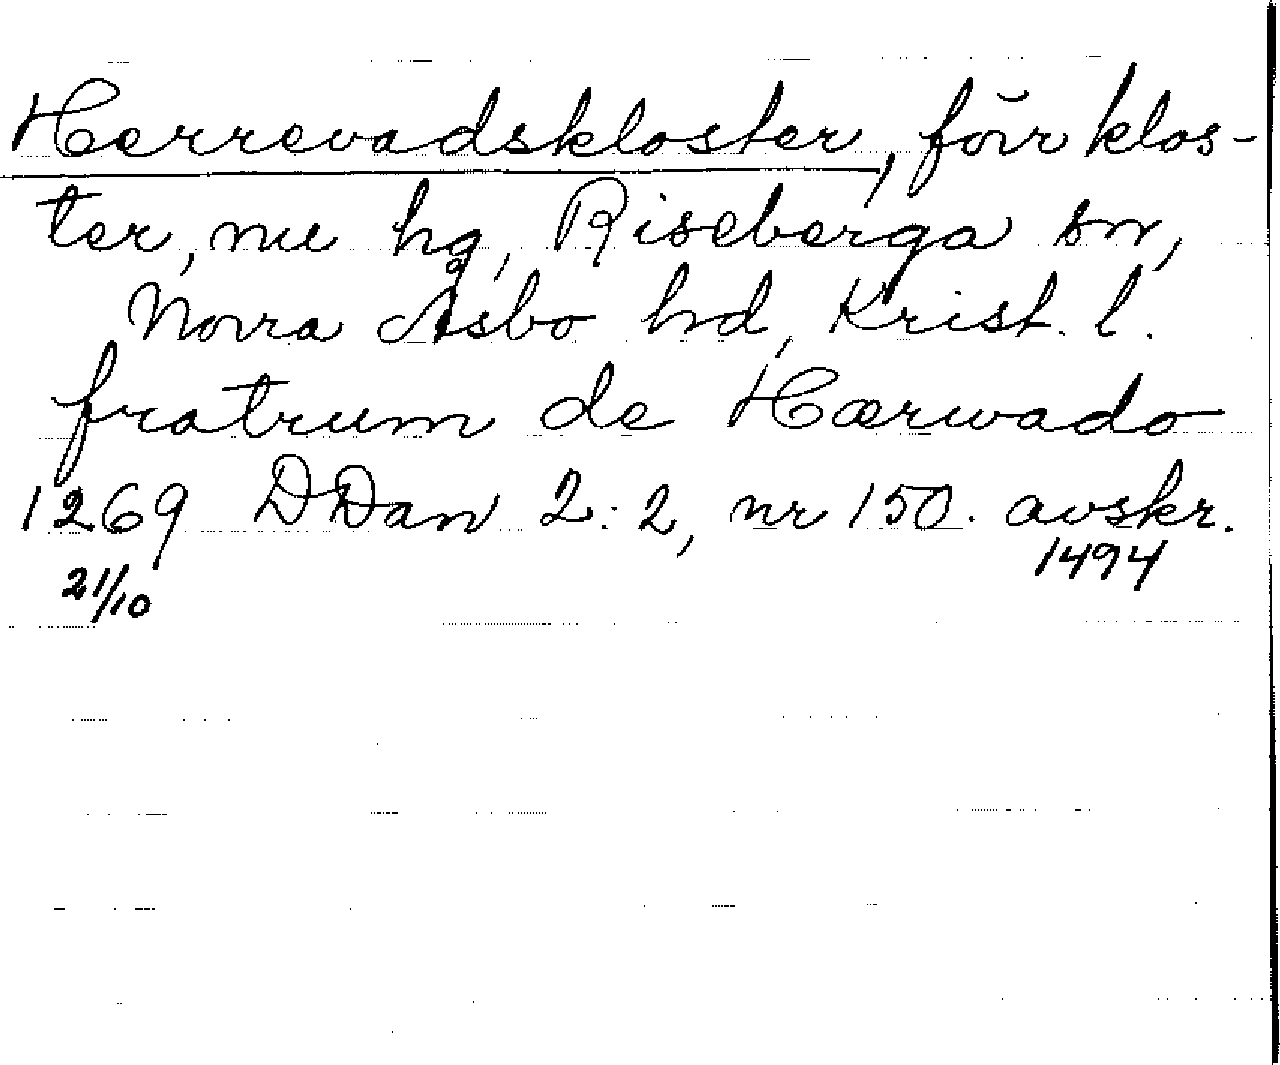 Herrevadskloster, förr klos-
ter, nu hg, Riseberga sn,
Norra Åsbo hd, Krist. l.
fratrum de Hærwado
1269 DDan 2:2, nr 150. avskr.
21/10 1494